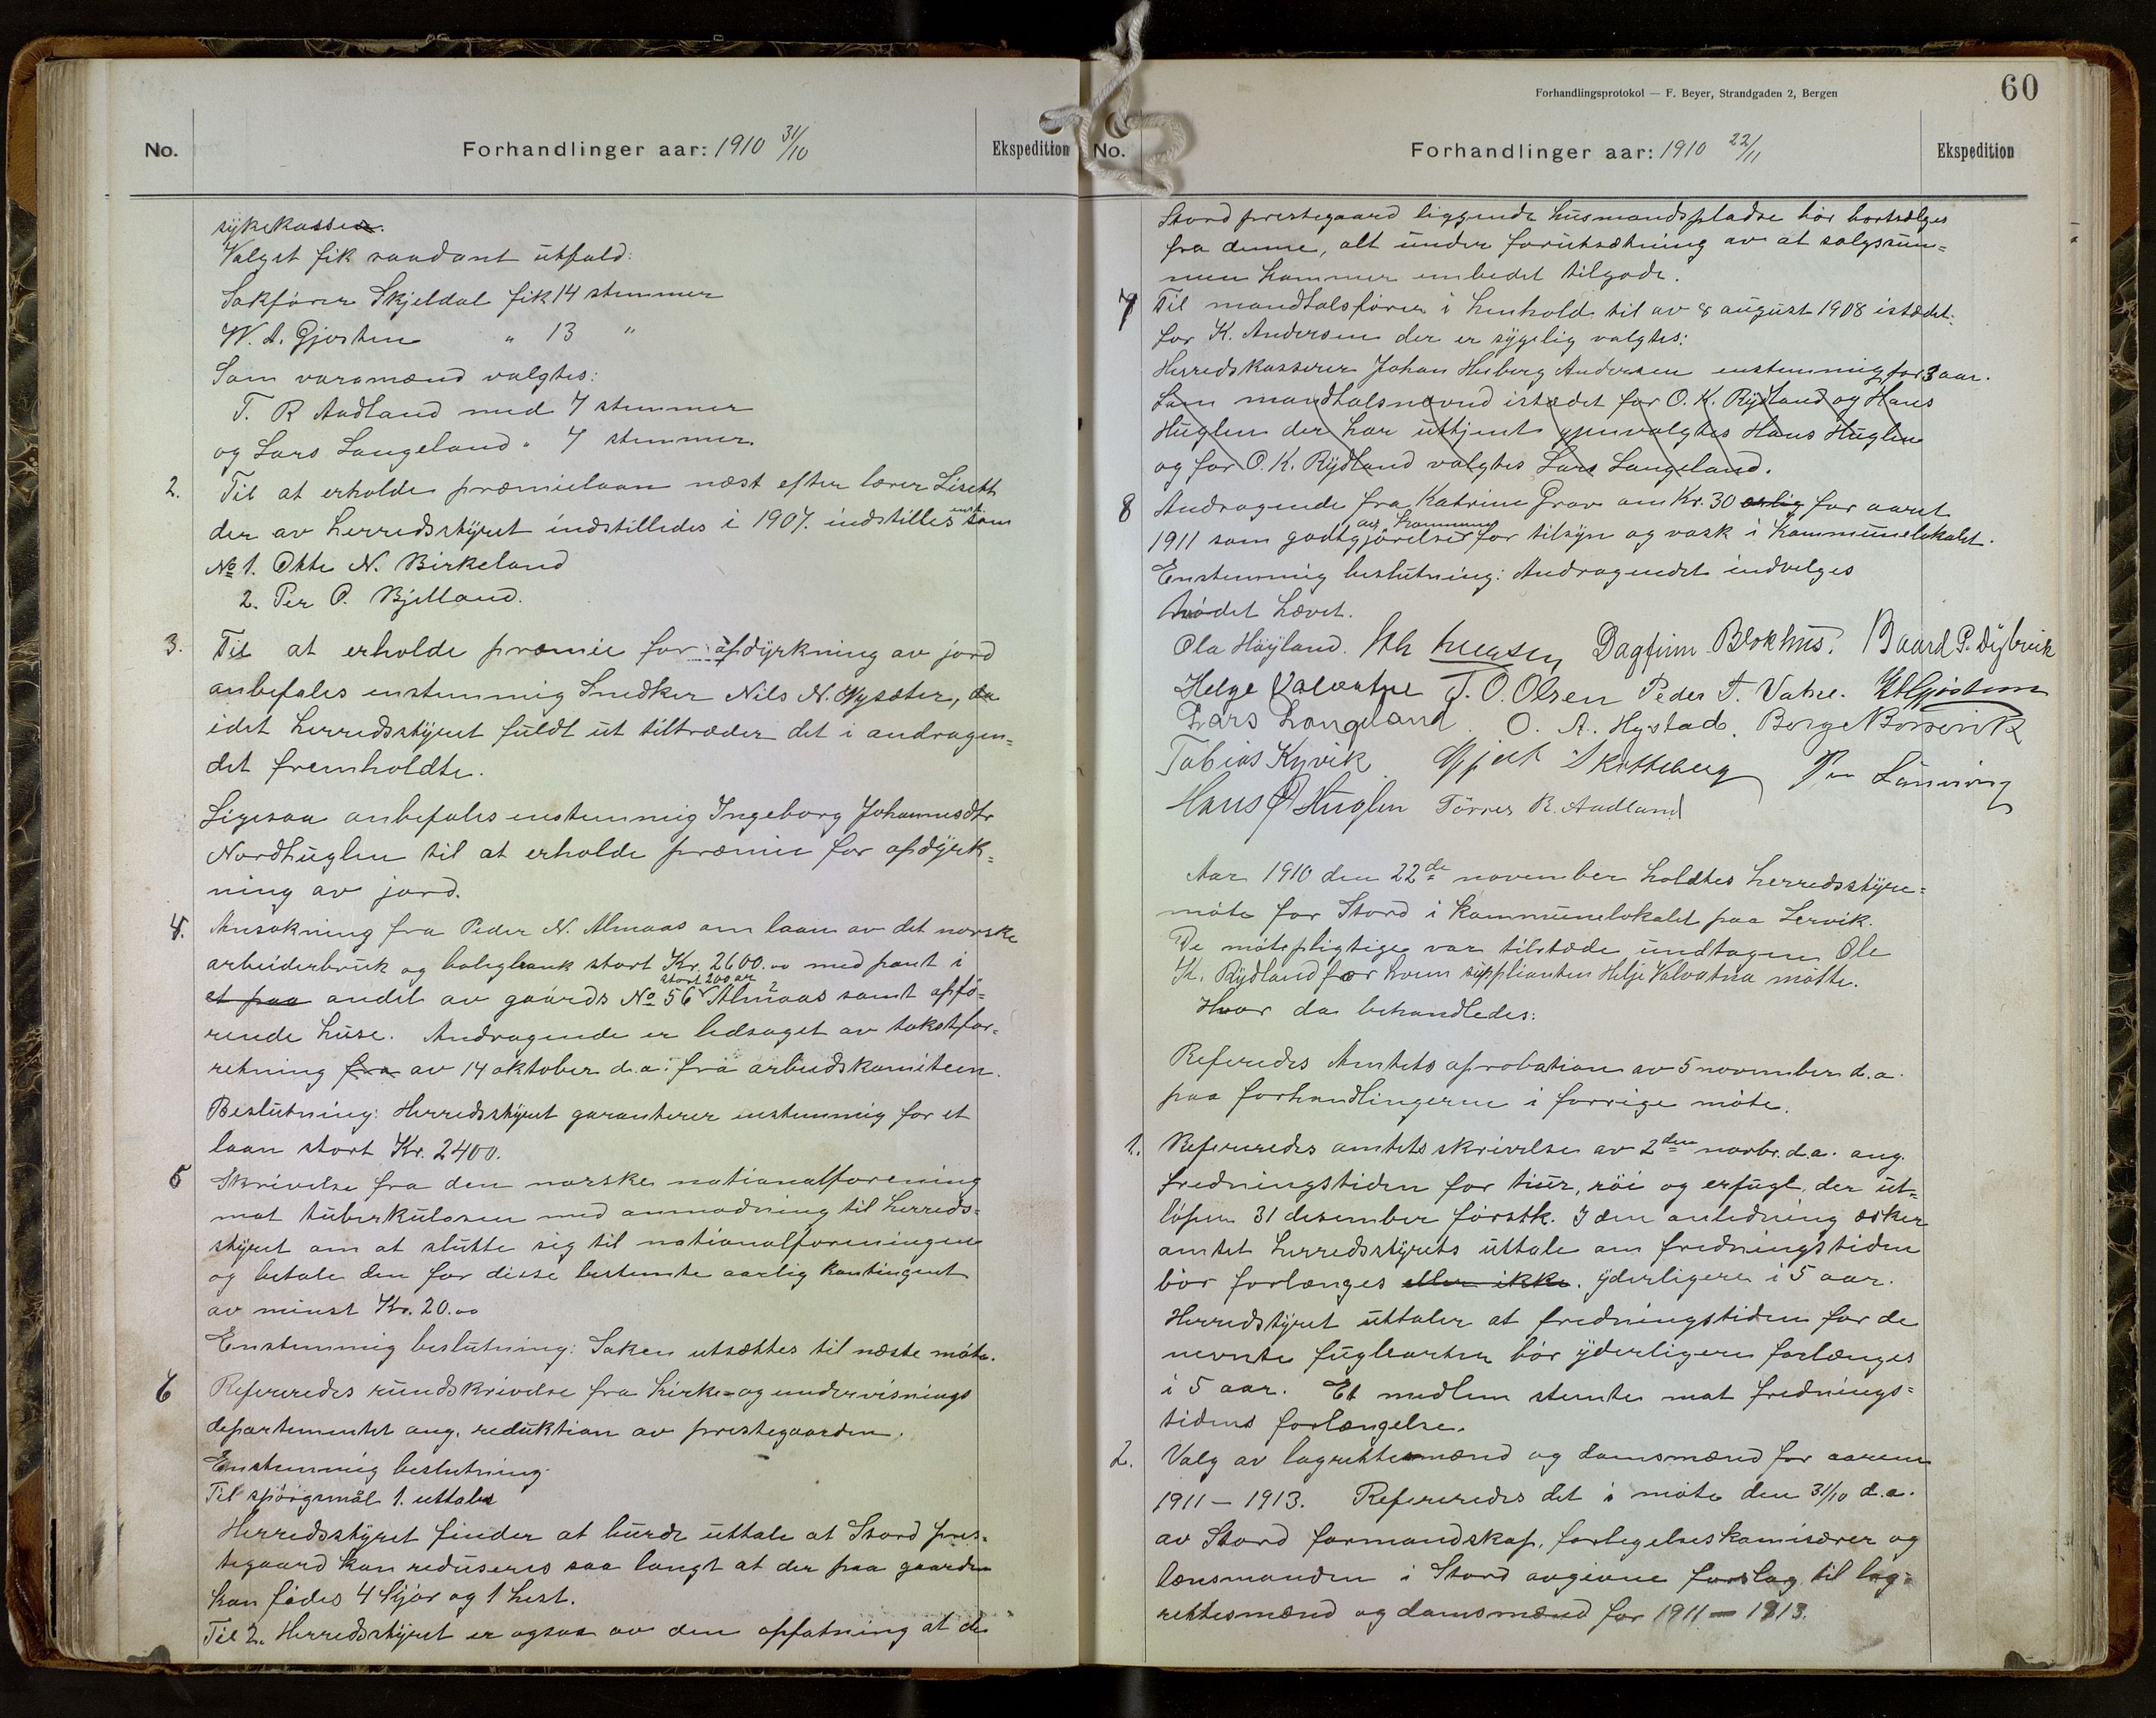 No.
Forhandlinger aar: 1910 31/10
Ekspedition
sykekassen.
Valget fik saadant utfald:
Sakfører Skjeldal fik 14 stemmer
W. A. Gjøsten " 13 "
Som varamænd valgtes:
T. R Aadland med 7 stemmer
og Lars Langeland " 7 stemmer.
2. Til at erholde præmielaan næst efter lærer Liseth
der av herredsstyret indstilledes i 1907. indstilles enst. som
No 1. Otto N. Birkeland
2. Per P. Bjelland.
3. Til at erholde præmie for opdyrkning av jord
anbefales enstemmig Snedker Nils N. Nysæter, da
idet herredsstyret fuldt ut tiltræder det i andragen=
det fremholdte.
Ligesaa anbefales enstemmig Ingeborg Johannesdtr
Nordhuglen til at erholde præmie for opdyrk=
ning av jord.
4. Ansøkning fra Peder N. Almaas om laan av det norske
arbeiderbruk og boligbank stort Kr. 2600.00 med pant i
et paa andel av gaards No 56 stort 200 ar 2 Almaas samt opfø=
rende huse. Andragende er ledsaget av takstfor=
retning fra av 14 oktober d.a. fra arbeidskomiteen.
Beslutning: Herredsstyret garanterer enstemmig for et
laan stort Kr. 2400.
5 Skrivelse fra den norske nationalforening
mot tuberkulosen med anmodning til herreds=
styret om at slutte sig til nationalforeningen
og betale den for disse bestemte aarlig kontingent
av minst Kr. 20.00
Enstemmig beslutning: Saken utsættes til næste møte.
6 Refereredes rundskrivelse fra kirke- og undervisnings
departementet ang. reduktion av prestegaarden.
Enstemmig beslutning.
Til spørgsmål 1. uttales
Herredsstyret finder at burde uttale at Stord pres=
tegaard kan reduseres saa langt at der paa gaarden
kan fødes 4 kjør og 1 hest.
Til 2. Herredsstyret er ogsaa av den opfatning at de
Forhandlingsprotokol — F. Beyer, Strandgaden 2, Bergen
60
No.
Forhandlinger aar: 1910 22/11
Ekspedition
Stord prestegaard liggende husmandspladse bør bortsælges
fra denne, alt under forutsætning av at salgssum=
men kommer embedet tilgode.
7 Til mandtalsfører i henhold til av 8 august 1908 istedet
for K. Andersen der er sygelig valgtes:
Herredskasserer Johan Heiberg Andersen enstemmig for 3 aar.
Som mandtalsnevnd istædet for O. K. Rydland og Hans
Huglen der har uttjent gjenvalgtes Hans Huglen
og for O. K. Rydland valgtes Lars Langeland.
8 Andragende fra Katrine Grov om Kr. 30 aarlig for aaret
1911 som godtgjørelse av kommunen for tilsyn og vask i kommunelokalet.
Enstemmig beslutning: Andragendet indvilges
Mødet hævet.
Ola Høyland. Dagfinn Blokhus. Baard P. Dybvik
Helge Valvatne J. O. Olsen Peder T. Vatne. WAGjøsteen
Lars Langeland. O. A. Hystad. Børge N Børsevik
Tobias Kyvik Gjert Skotteberg Per Lønning
Hans Ø Huglen Tørres R. Aadland
Aar 1910 den 22de november holdtes herredsstyre=
møte for Stord i kommunelokalet paa Lervik.
De møtepligtige var tilstæde undtagen Ole
K. Rydland for hvem suppleanten Helje Valvatna møtte.
Hvor da behandledes:
Referedes Amtets aprobation av 5 november d.a.
paa forhandlingerne i forrige møte.
1. Refereredes amtets skrivelse av 2den novbr. d.a. ang.
fredningstiden for tiur, røi og erfugl, der ut=
løpen 31 desember førstk. I den anledning æsker
amtet herredsstyrets uttale om fredningstiden
bør forlænges eller ikke. yderligere i 5 aar.
Herredstyret uttaler at fredningstiden for de
nevnte fuglearter bør yderligere forlænges
i 5 aar. Et medlem stemte mot frednings=
tidens forlængelse.
2. Valg av lagrettemænd og domsmænd for aarene
1911 – 1913. Refereredes det i møte den 31/10 d.a.
av Stord formandskap, forligelseskomisærer og
lensmanden i Stord avgivne forslag til lag=
rettesmænd og domsmænd for 1911 — 1913.